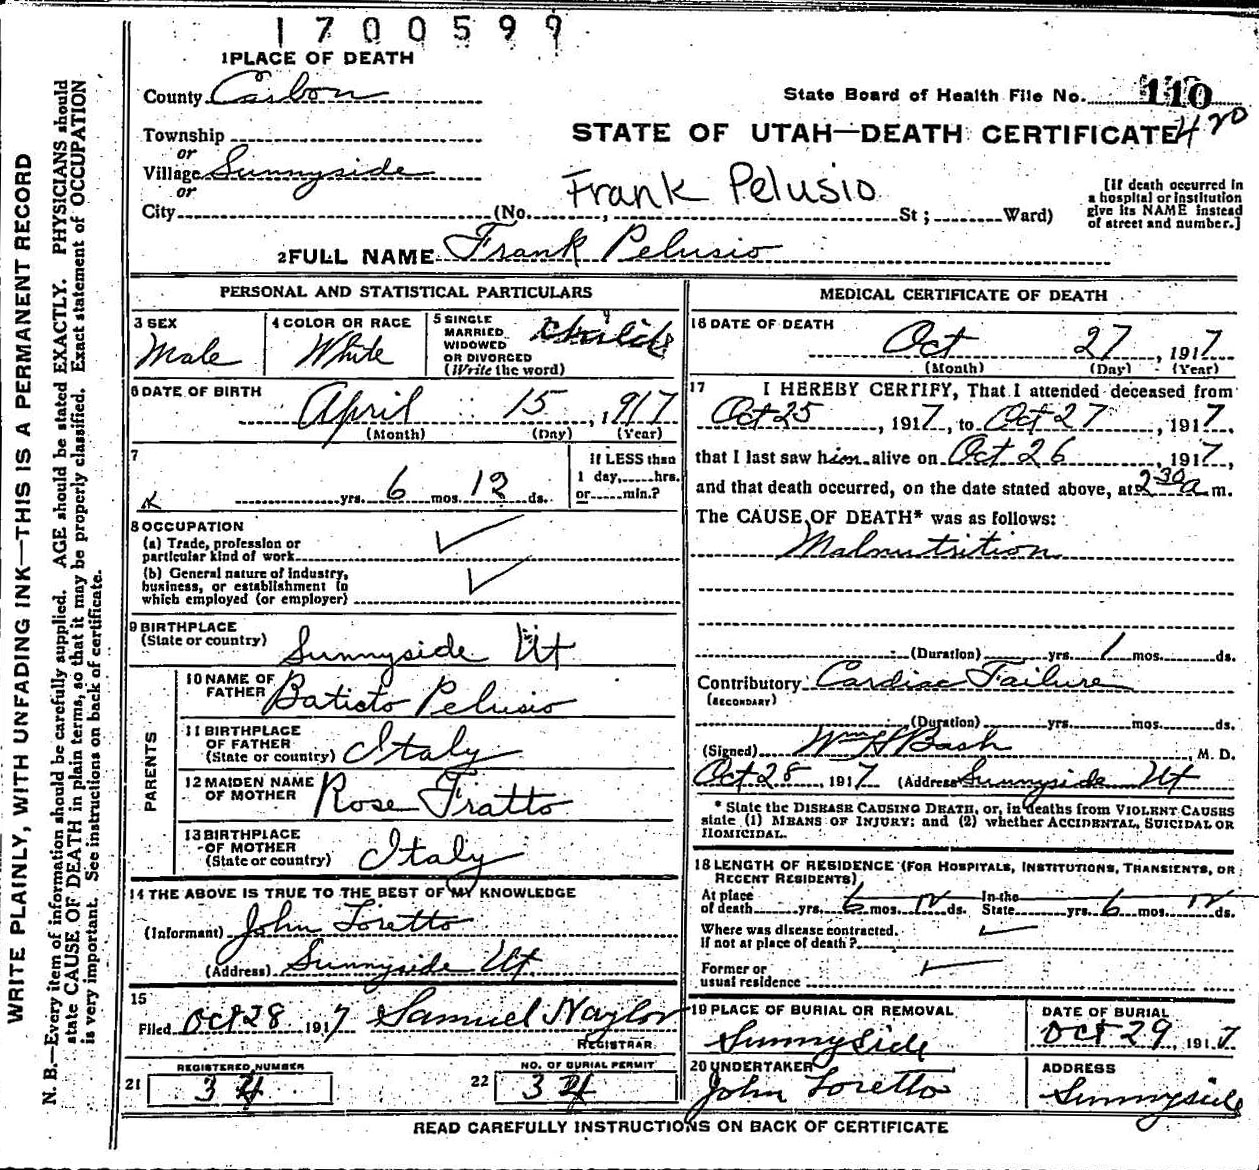 1700599
1 PLACE OF DEATH
County Carbon
State Board of Health File No. 110
Township
STATE OF UTAH—DEATH CERTIFICATE 420
or
Village Sunnyside
or
Frank Pelusio
[If death occurred in
a hospital or institution
give its NAME instead
of street and number.]
City (No. , St; Ward)
2 FULL NAME Frank Pelusio
PERSONAL AND STATISTICAL PARTICULARS
3 SEX
Male
4 COLOR OR RACE
White
5 SINGLE
MARRIED
WIDOWED
OR DIVORCED
(Write the word)
Child
6 DATE OF BIRTH
April 15, 1917
(Month) (Day) (Year)
7
yrs. 6 mos. 12 ds.
If LESS than
1 day, hrs.
or min.?
8 OCCUPATION
(a) Trade, profession or
particular kind of work
(b) General nature of industry,
business, or establishment in
which employed (or employer)
9 BIRTHPLACE
(State or country) Sunnyside Ut
PARENTS
10 NAME OF
FATHER Batisto Pelusio
11 BIRTHPLACE
OF FATHER
(State or country) Italy
12 MAIDEN NAME
OF MOTHER Rose Fratto
13 BIRTHPLACE
OF MOTHER
(State or country) Italy
14 THE ABOVE IS TRUE TO THE BEST OF MY KNOWLEDGE
(Informant) John Loretto
(Address) Sunnyside Ut
15
Filed Oct 28 1917 Samuel Naylor
REGISTRAR
REGISTERED NUMBER
21 34
NO. OF BURIAL PERMIT
22 34
MEDICAL CERTIFICATE OF DEATH
16 DATE OF DEATH
Oct 27, 1917
(Month) (Day) (Year)
17 I HEREBY CERTIFY, That I attended deceased from
Oct 25, 1917, to Oct 27, 1917,
that I last saw him alive on Oct 26, 1917,
and that death occurred, on the date stated above, at 2 30 a m.
The CAUSE OF DEATH* was as follows:
Malnutrition
(Duration) yrs. 1 mos. ds.
Contributory Cardiac Failure
(SECONDARY)
(Duration) yrs. mos. ds.
(Signed) Wm H Bash, M. D.
Oct 28, 1917 (Address) Sunnyside Ut
* State the DISEASE CAUSING DEATH, or, in deaths from VIOLENT CAUSES
state (1) MEANS OF INJURY; and (2) whether ACCIDENTAL, SUICIDAL OR
HOMICIDAL.
18 LENGTH OF RESIDENCE (FOR HOSPITALS, INSTITUTIONS, TRANSIENTS, OR
RECENT RESIDENTS)
At place In the
of death yrs. 6 mos. 12 ds. State yrs. 6 mos. 12 ds.
Where was disease contracted,
If not at place of death?
Former or
usual residence
19 PLACE OF BURIAL OR REMOVAL
Sunnyside
DATE OF BURIAL
Oct 29, 1917
20 UNDERTAKER
John Loretto
ADDRESS
Sunnyside
READ CAREFULLY INSTRUCTIONS ON BACK OF CERTIFICATE
WRITE PLAINLY, WITH UNFADING INK—THIS IS A PERMANENT RECORD
N. B.—Every item of information should be carefully supplied. AGE should be stated EXACTLY. PHYSICIANS should
state CAUSE OF DEATH in plain terms, so that it may be properly classified. Exact statement of OCCUPATION
is very important. See instructions on back of certificate.